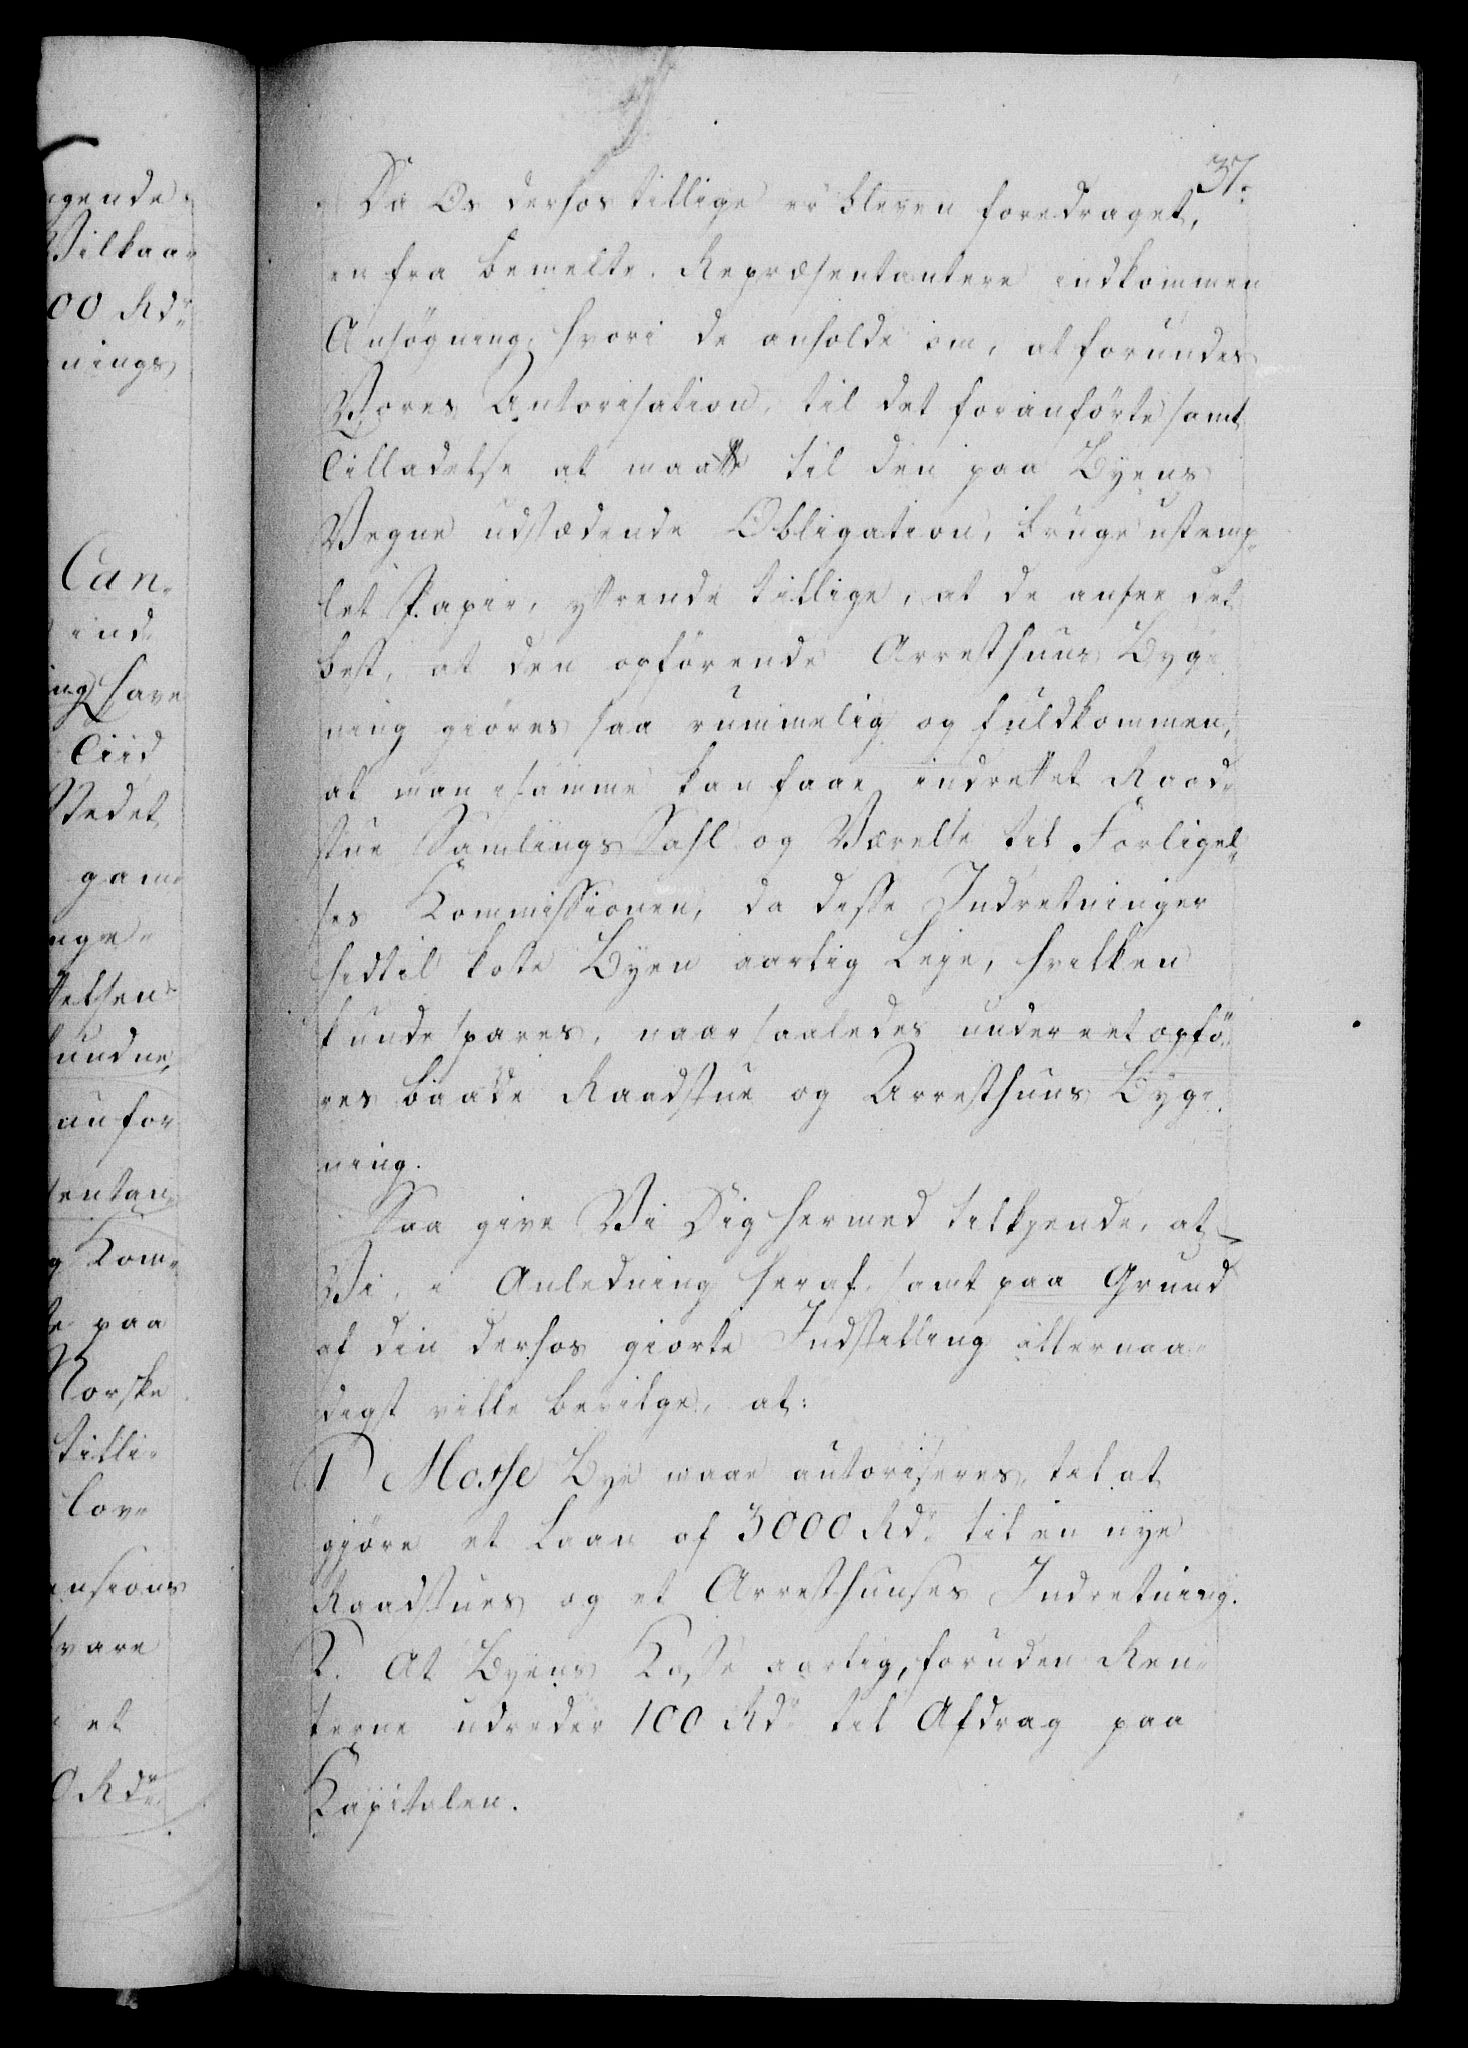 37.
Da Os derhos tillige er bleven foredraget,
en fra bemelte Repræsentantere indkommen
Ansögning, hvori de anholde om, at forundes
Vores Autorisation, til det foranförte samt
Tilladelse at maatte til den paa Byens
Vegne udstædende Obligation, bruge ustemp-
let Papir, yttrende tillige, at de ansee det
best, at den opförende Arresthuus Byg-
ning giöres saa rummelig og fuldkommen,
at man i samme kan faae indrettet Raad-
stue Samlings Sahl og Værelse til Forligel-
ses Kommissionen, da disse Indretninger
hidtil koste Byen aarlig Leje, hvilken
kunde spares, naar saaledes under eet opfö-
res baade Raadstue og Arresthuus Byg-
ning.
Saa give Vi Dig hermed tilkjende, at
Vi, i Anledning heraf, samt paa Grund
af din derhos giorte Indstilling allernaa-
digst ville bevilge, at:
1) Mosse Bye maae autoriseres, til at
gjöre et Laan af 3000 Rdr til en nye
Raadstues og et Arresthuuses Indretning.
2. At Byens Kasse aarlig, foruden Ren-
terne udreder 100 Rdr til Afdrag paa
Kapitalen.